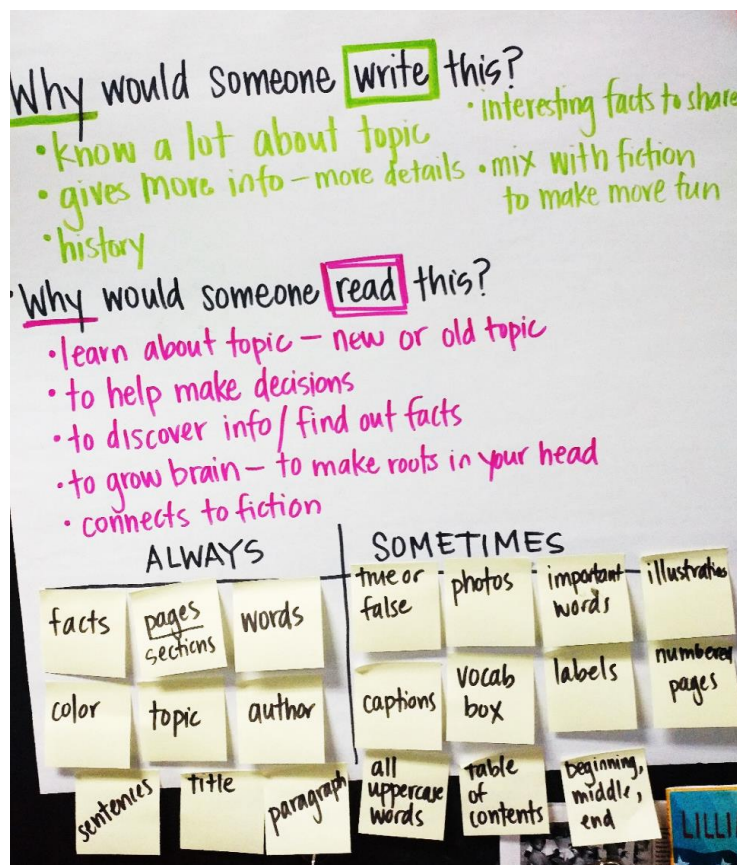 Why would someone write this?
• know a lot about topic
• gives more info – more details
• history
• interesting facts to share
• mix with fiction
to make more fun
Why would someone read this?
• learn about topic – new or old topic
• to help make decisions
• to discover info / find out facts
• to grow brain – to make roots in your head
• connects to fiction
ALWAYS
facts
pages
sections
words
color
topic
author
sentences
title
paragraph
SOMETIMES
true or
false
photos
important
words
illustrations
captions
vocab
box
labels
numbered
pages
all
uppercase
words
table
of
contents
beginning,
middle,
end
LILLI